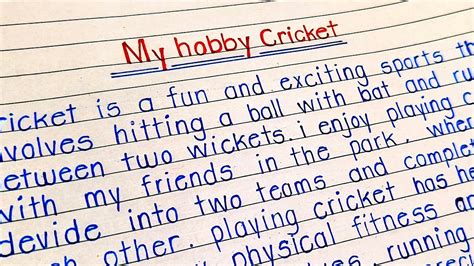 My hobby Cricket
ricket is a fun and exciting sports th
volves hitting a ball with bat and ru
etween two wickets. i enjoy playing c
with my friends in the park, wher
devide into two teams and complet
ch other. playing cricket has he
physical fitness a
ves, running